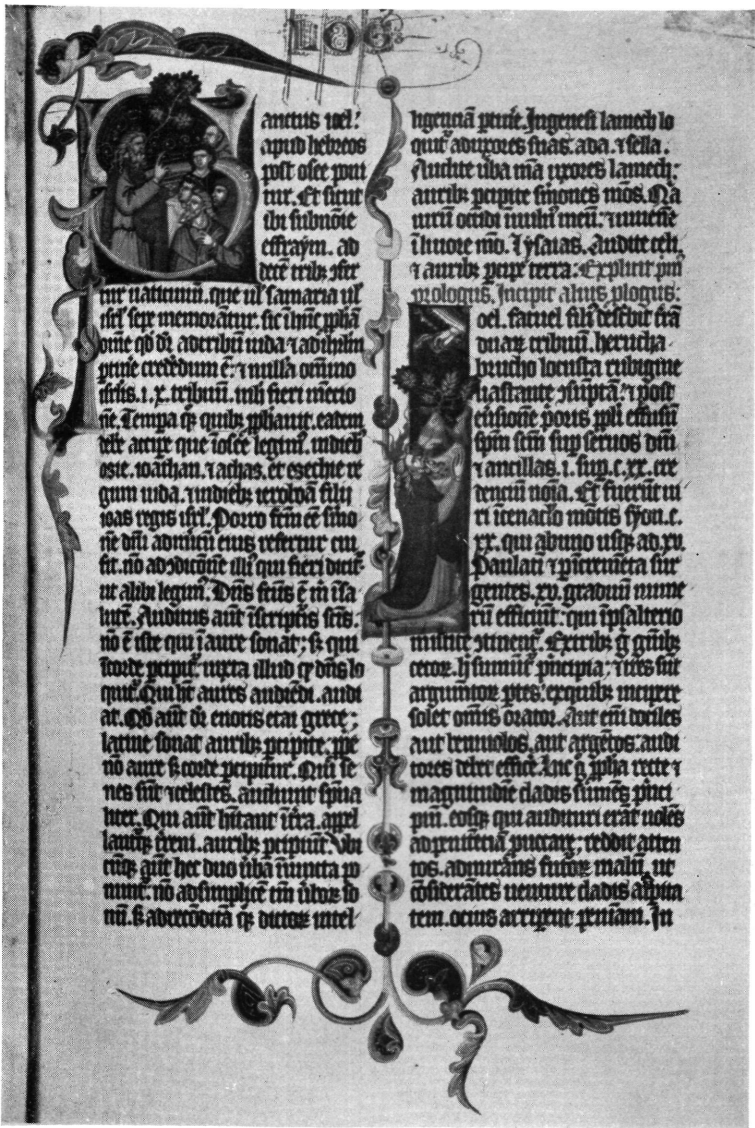 anctus ioel:
apud hebreos
post osee poni
tur. Et sicut
ibi sub noīe
effraym. ad
decē tribꝫ
tur uaticiniū. que ul samaria ul
isrl sepe memorātur. sic ī hūc ꝓphā
om̄e qd dr̄ ad tribū iuda ⁊ ad ihrlm̄
ꝑtine credēdum ē. ⁊ nulla om̄ino
isrlis. i. x. tribuū. ibi fieri mētio
nē. Tempa qꝫ quibꝫ ꝓphauit. eadem
debe accipe que ī osee legimꝰ. in diebꝫ
osie. ioathan. ⁊ achas. et esechie re
gum iuda. ⁊ in diebꝫ ieroboā filii
ioas regis isrl. Porro scm̄ eē smo
nē dn̄i
fit. nō illi qui fieri dicit
ut alibi legimꝰ. Dn̄s scūs ē m̄ ī sa
lutē. Audiuis aūt ī scriptis scis.
nō ē iste qui ī aure sonat; sꝫ qui
ī corde ꝑcipit iuxta illud qd dn̄s lo
quit. Qui ht̄ aures audiēdi. audi
at. Qd aūt dr̄ enotis etai grece;
latine sonat auribꝫ ꝑcipite. ꝓpe
nō aure sꝫ corde ꝑcipiūt. Qui se
nes sūt ⁊ celestes. audiunt spūa
liter. Qui aūt hītant ī ťra. appel
lantꝫ ťreni. auribꝫ ꝑcipiūt. Vbi
cūqꝫ aūt hec duo ūba iūncta po
nunt. nō ad simplicē tm̄ ūboꝝ so
nū. sꝫ ad recōdita qꝫ dictoꝝ intel
ligenciā ꝑtine. In genesi lamech lo
quit ad uxores suas. ada. ⁊ sella.
Audite ūba mā uxores lamech:
auribꝫ ꝑcipite smones mōs. Qa
uirū occidi ī uulnꝰ meū. ⁊ iuuenē
ī liuore mō. I ysaias. Audite celi.
⁊ auribꝫ ꝑcipe terra: Explicit pm̄
prologus. Incipit alius plogus:
oel. fatuel filiꝰ describit ťrā
duaꝝ tribuū. herucha
brucho locusta rubigine
uastante ⁊ post
ꝓoris ppli effusū
spm̄ scm̄ sup seruos dn̄i
⁊ ancillas. i. sup. c. xx. cre
denciū noīa. Et fuerūt in
ī cenaclo mōtis syon. c.
xx. qui ab uno usqꝫ ad. xv.
Paulati ꝑ īcremēta sur
gentes. xv. graduū nume
rū efficiūt. qui ī psalterio
mistice ꝯtinent. Ex tribꝫ g̃ gn̄ibꝫ
ceroꝝ. hi sumūt pncipia; ⁊ tres sūt
argumētoꝝ ptes. ex quibꝫ incipere
solet omīs orator. Aut eni dociles
aut beniuolos. aut atgētos. audi
tores debet efficē. Inc g̃ ꝓpha recte ⁊
magnitudīe cladis sumēs princi
piū. eosqꝫ qui audituri erāt nolēs
ad penitēciā puocare; reddit atten
tos. admirās futōꝝ maloꝝ. ut
cōsiderātes uenture cladis aspita
tem. ocius arripent peniam. In